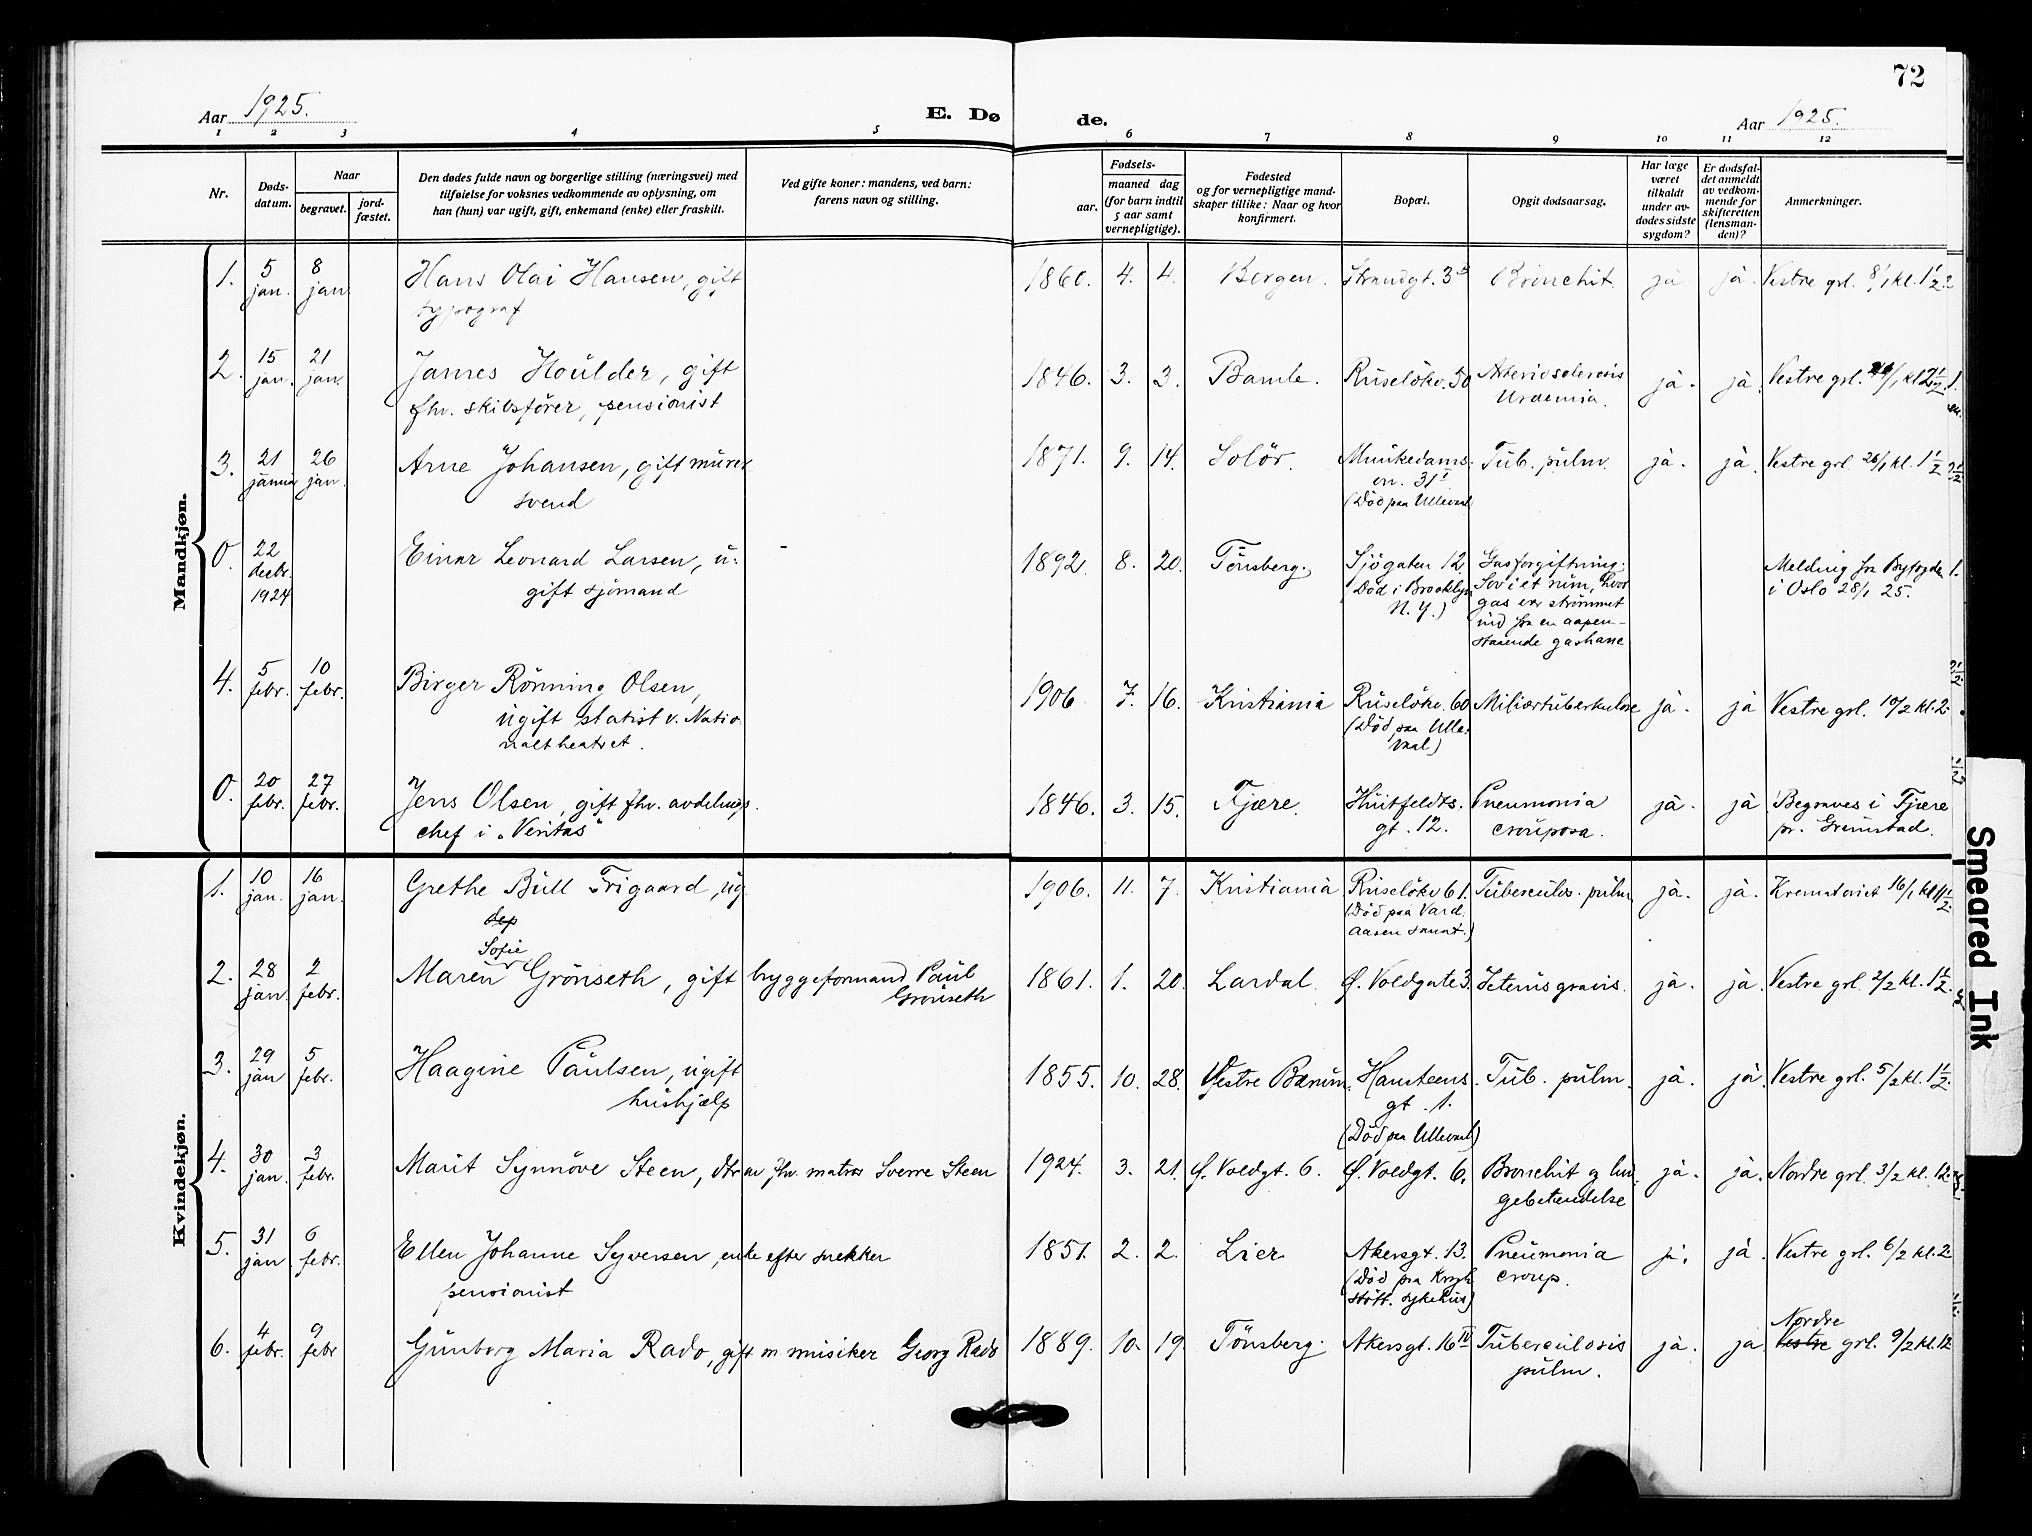 72
Aar 1925.
E. Dø de.
Aar 1925.
1 2 3 4 5 6 7 8 9 10 11 12
Nr.
Døds-
datum.
Naar
begravet.
jord-
fæstet.
Den dødes fulde navn og borgerlige stilling (næringsvei) med
tilføielse for voksnes vedkommende av oplysning, om
han (hun) var ugift, gift, enkemand (enke) eller fraskilt.
Ved gifte koner: mandens, ved barn:
farens navn og stilling.
Fødsels-
aar.
maaned dag
(for barn indtil
5 aar samt
vernepligtige).
Fødested
og for vernepligtige mand-
skaper tillike: Naar og hvor
konfirmert.
Bopæl.
Opgit dødsaarsag.
Har læge
været
tilkaldt
under av-
dødes sidste
sygdom?
Er dødsfal-
det anmeldt
av vedkom-
mende for
skifteretten
(lensman-
den)?
Anmerkninger.
Mandkjøn.
1. 5 jan. 8 jan. Hans Olai Hansen, gift
typograf
1860. 4. 4. Bergen. Strandgt. 3 Bronchit. ja ja. Vestre grl. 8/1 kl. 1 1/2
2. 15 jan. 21 jan. James Houlder, gift
fhv. skibsfører, pensionist
1846. 3. 3. Bamle. Ruseløkv. 30 Arteriosclerosis
Uraemia.
ja. ja. Vestre grl.
3. 21 januar 26 jan. Arne Johansen, gift murer
svend
1871. 9. 14. Solør. Munkedams-
vn. 31 I
(Död paa Ullevaal)
Tub. pulm. ja. ja. Vestre grl. 26/1 kl. 1 1/2
0. 22 decbr. 1924 Einar Leonard Larsen, u-
gift sjömand
1892. 8. 20. Tönsberg. Sjögaten 12
(Död i Brooklyn
N. Y.)
Gasforgiftning:
Sov i et rum, hvor
gas var strömmet
ind fra en aapen-
staaende gashane
Meldig fra Byfogden
i Oslo 28/1 25.
4. 5 febr. 10 febr. Birger Rönning Olsen,
ugift statist v. Natio-
naltheatret.
1906 7. 16. Kristiania Ruselökv. 60
(Död paa Ulle-
vaal.)
Miliærtuberkulose ja. ja Vestre grl. 10/2 kl. 2.
0. 20 febr. 27 febr. Jens Olsen, gift fhv. avdelings-
chef i „Veritas"
1846. 3. 15. Fjære. Huitfeldts.
gt. 12.
Pneumonia
crouposa.
ja. ja Begraves i Fjære
pr. Grimstad.
Kvindekjøn.
1. 10 jan. 16 jan. Grethe Bull Frigaard, ug.
1906. 11. 7. Kristiania Ruselökv 61.
(Död paa Vard-
aasen sanat.)
Tuberculos. pulm. ja. ja. Krematoriet 16/1 kl. 11 1/2.
Sofie
2. 28 jan. 2 febr. Maren Grönseth, gift bryggeformand Paul
Grönseth
1861. 1. 20. Lardal. Ø. Voldgate 3. Icterus gravis. ja. ja. Vestre grl. 2/2 kl. 1 1/2.
3. 29 jan 5 febr. Haagine Paulsen, ugift
hushjælp
1855. 10. 28. Vestre Bærum. Hansteens
gt. 1.
(Död paa Ullevaal)
Tub. pulm. ja. ja. Vestre grl. 5/2 kl. 1 1/2.
4. 30 jan. 3 febr. Marit Synnöve Steen, dtr av fhv. matros Sverre Steen
1924. 3. 21. Ø. Voldgt. 6. Ø. Voldgt. 6. Bronchit og lun-
gebetændelse
ja. ja. Nordre grl. 3/2 kl. 12.
5. 31 jan 6 febr. Ellen Johanne Syversen, enke efter snekker
pensionist
1851. 2. 2. Lier Akersgt. 13.
(Död paa Krogh
stött. sykehus)
Pneumonia
croup.
ja. ja. Vestre grl. 6/2 kl. 2.
6. 4 febr. 9 febr Gunborg Maria Rado, gift m musiker Georg Rado
1889. 10. 19. Tönsberg. Akersgt. 16 IV Tuberculosis
pulm.
ja. ja Nordre
Vestre grl. 9/2 kl. 12
Smeared Ink